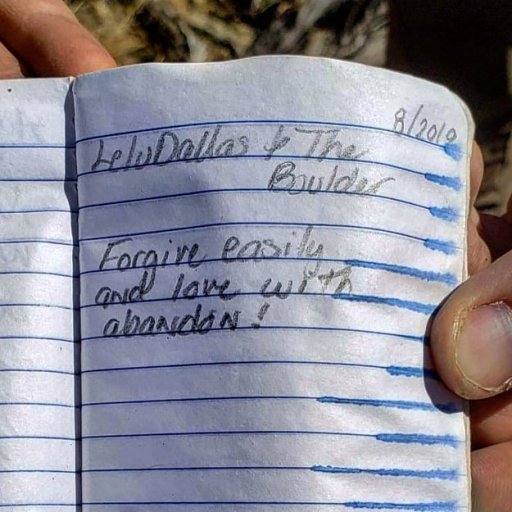 8/2010
LeluDallas & The
Boulder
Forgive easily
and love with
abandon!